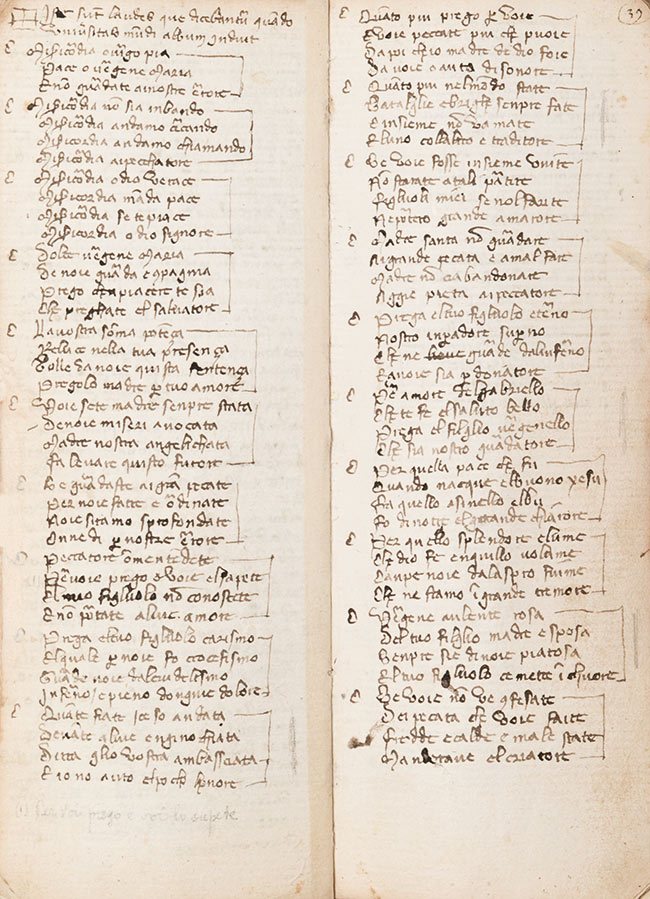 Iste sunt laudes que dicebantur quando
universitas mundi album induit
Misericordia o virgo pia
Pace o vergene Maria
E non guardate a nostre errore
Misericordia non sia in bando
Misericordia andamo cercando
Misericordia andamo chiamando
Misericordia ai pecchatore
Misericordia o dio verace
Misericordia manda pace
Misericordia se te piace
Misericordia o dio signore
Dolce vergene Maria
De noie guarda
Prego che in piacere te sia
Che preghate el salvatore
La vostra soma potença
Relluce nella tua presença
Tolle da noie quista sentença
Pregolo madre per tuo amore
Voie sete madre senpre stata
De noie miseri avocata
Madre nostra angelichata
Fa levare quisto furore
No e guardaste ai gra pecate
Per noie fatte e ordinate
Noie sitamo sprofondate
Onne di per nostre errore
Peccatore omentedete
Per voie prego e voie el sapete
El mio figliolo non conoscete
E non portate a lui amore
Prega el tuo figliolo carismo
El quale per noie fo crocefismo
Guarde noie dal crudelismo
Inferno e pieno d ongne dolore
Quante fiate ice so andata
Denante a lui en gino
Ditta glio vostra ambassciata
E io no auto el poco onore
(1) Per voi prego e voi lo sapete
39
Quanto piu prego per voie
E voie peccate piu che puoie
Da poi ch io madre de dio foie
Da voie o auto disonore
Quanto piu nel mondo state
Bataglie e brighe senpre fate
E insieme non v amate
E l uno coll altro e traditore
Se voie fosse insieme unite
Non starate a tali partite
Figlioli miei se nol farite
Reperero grande amarore
Madre santa non guardare
Ai grande pecata e a mal fare
Madre non ci abandonare
Aggie pieta ai peccatore
Prega el tuo figliolo eterno
Nostro inperadore superno
Che ne guarde dal inferno
E a noie sia perdonatore
Per amore del Gabriello
Che te fe el saluto bello
Prega el figlio vergenello
Che sia nostro guardatore
Per quella pace che fu
Quando nacque el buono xesu
Fra quello asinello el bu
Fo di notte el grande chiarore
Per quello splendore e lume
Che dio fe en quillo volume
Canpe noie dal aspro fiume
Che ne stamo in grande tremore
Vergene aulente rosa
Del tuo figlio madre e sposa
Senpre sie di noie piatosa
El tuo figliolo ce mette in chuore
Se voie non ve confesate
Dei pecata che voie faite
Fredde e calde e male state
Mandarave el criatore